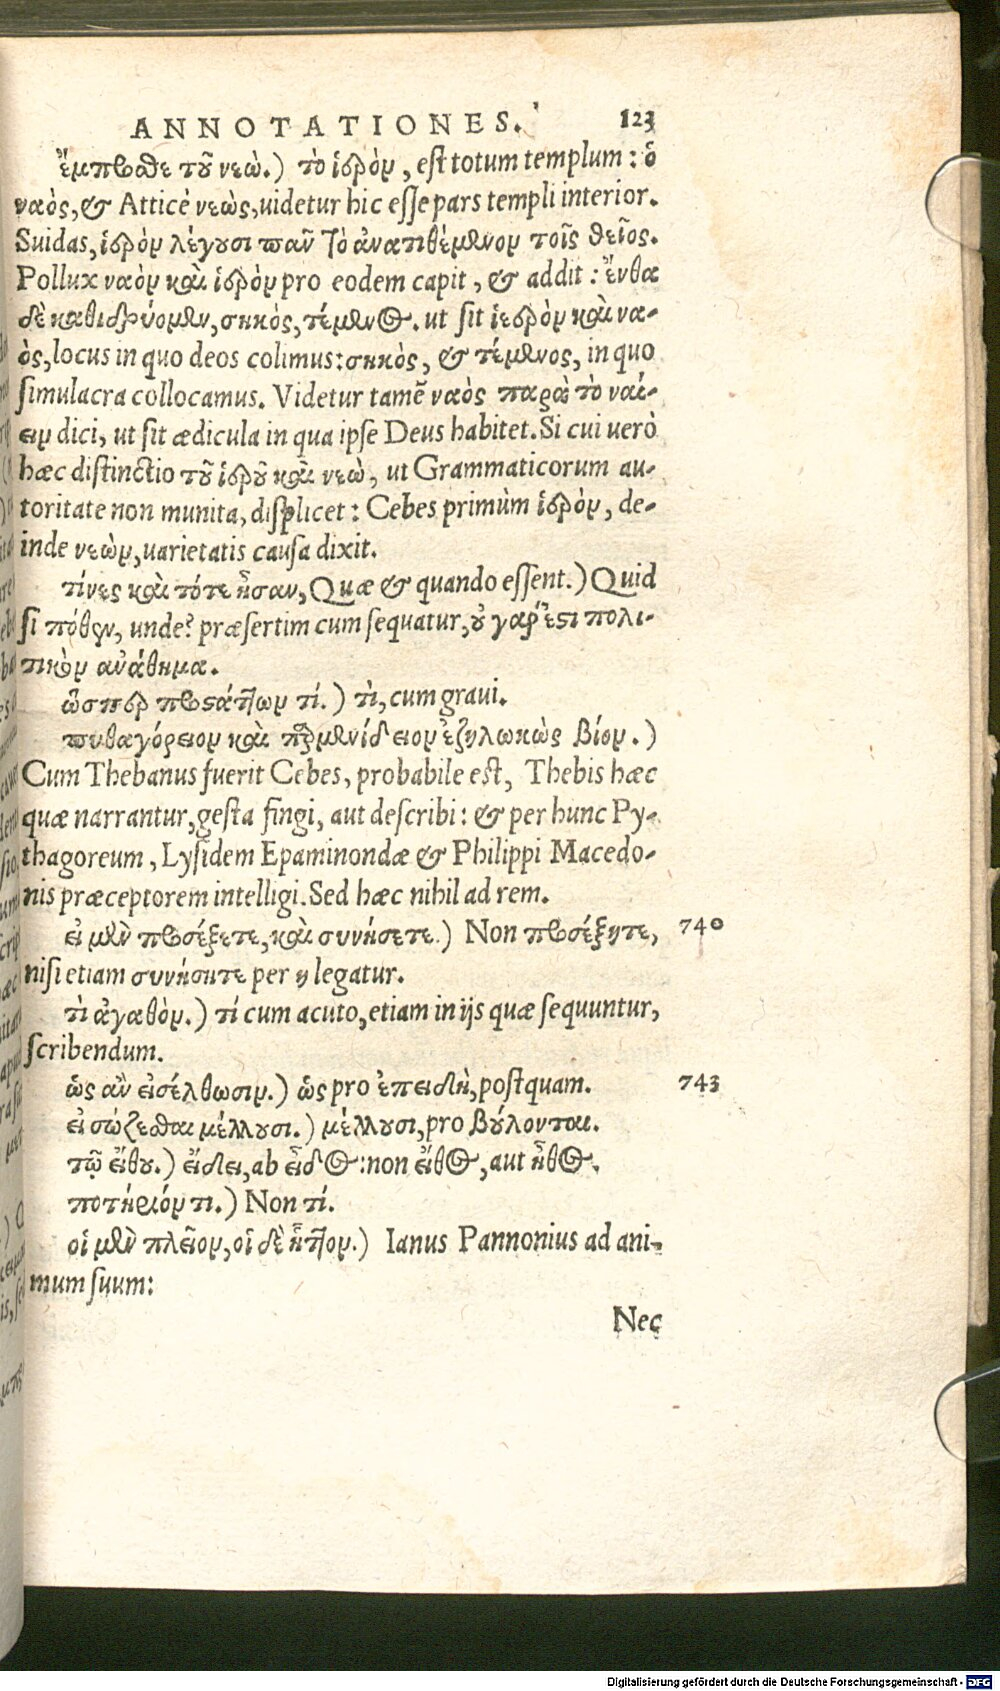 ANNOTATIONES. 123
ἔμπροσθε τοῦ νεώ.) τὸ ἱερὸν, est totum templum: ὁ
ναὸς, & Atticè νεὼς, uidetur hic esse pars templi interior.
Suidas, ἱερὸν λέγουσι πᾶν τὸ ἀνατιθέμενον τοῖς θείοις.
Pollux ναὸν καὶ ἱερὸν pro eodem capit, & addit: ἔνθα
δὲ καθιδρύομεν, σηκὸς, τέμενος. ut sit ἱερὸν καὶ να-
ὸς, locus in quo deos colimus: σηκὸς, & τέμενος, in quo
simulacra collocamus. Videtur tamē ναὸς παρὰ τὸ ναί-
ειν dici, ut sit ædicula in qua ipse Deus habitet. Si cui uerò
hæc distinctio τοῦ ἱεροῦ καὶ νεὼ, ut Grammaticorum au-
toritate non munita, displicet: Cebes primùm ἱερὸν, de-
inde νεὼν, uarietatis causa dixit.
τίνες καὶ τότε ἦσαν, Quæ & quando essent.) Quid
si πόθεν, unde? præsertim cum sequatur, οὐ γαρ ἐστι πολι-
τικὸν ἀνάθημα.
ὥσπερ προστάττων τί.) τὶ, cum graui.
πυθαγόρειον καὶ παρμενίδειον ἐζηλωκὼς βίον.)
Cum Thebanus fuerit Cebes, probabile est, Thebis hæc
quæ narrantur, gesta fingi, aut describi: & per hunc Py-
thagoreum, Lysidem Epaminondæ & Philippi Macedo-
nis præceptorem intelligi. Sed hæc nihil ad rem.
εἰ μὲν προσέξετε, καὶ συνήσετε.) Non προσέξητε, 740
nisi etiam συνήσητε per η legatur.
τὶ ἀγαθὸν.) τί cum acuto, etiam in ijs quæ sequuntur,
scribendum.
ὡς ἂν εἰσέλθωσιν.) ὡς pro ἐπειδὴ, postquam. 743
εἰ σώζεσθαι μέλλουσι.) μέλλουσι, pro βούλονται.
τῷ εἴθου.) εἴδει, ab εἶδος: non εἶθος, aut ἦθος.
ποτήριόν τι.) Non τί.
οἱ μὲν πλεῖον, οἱ δὲ ἧττον.) Ianus Pannonius ad ani-
mum suum:
Nec
Digitalisierung gefördert durch die Deutsche Forschungsgemeinschaft - DFG